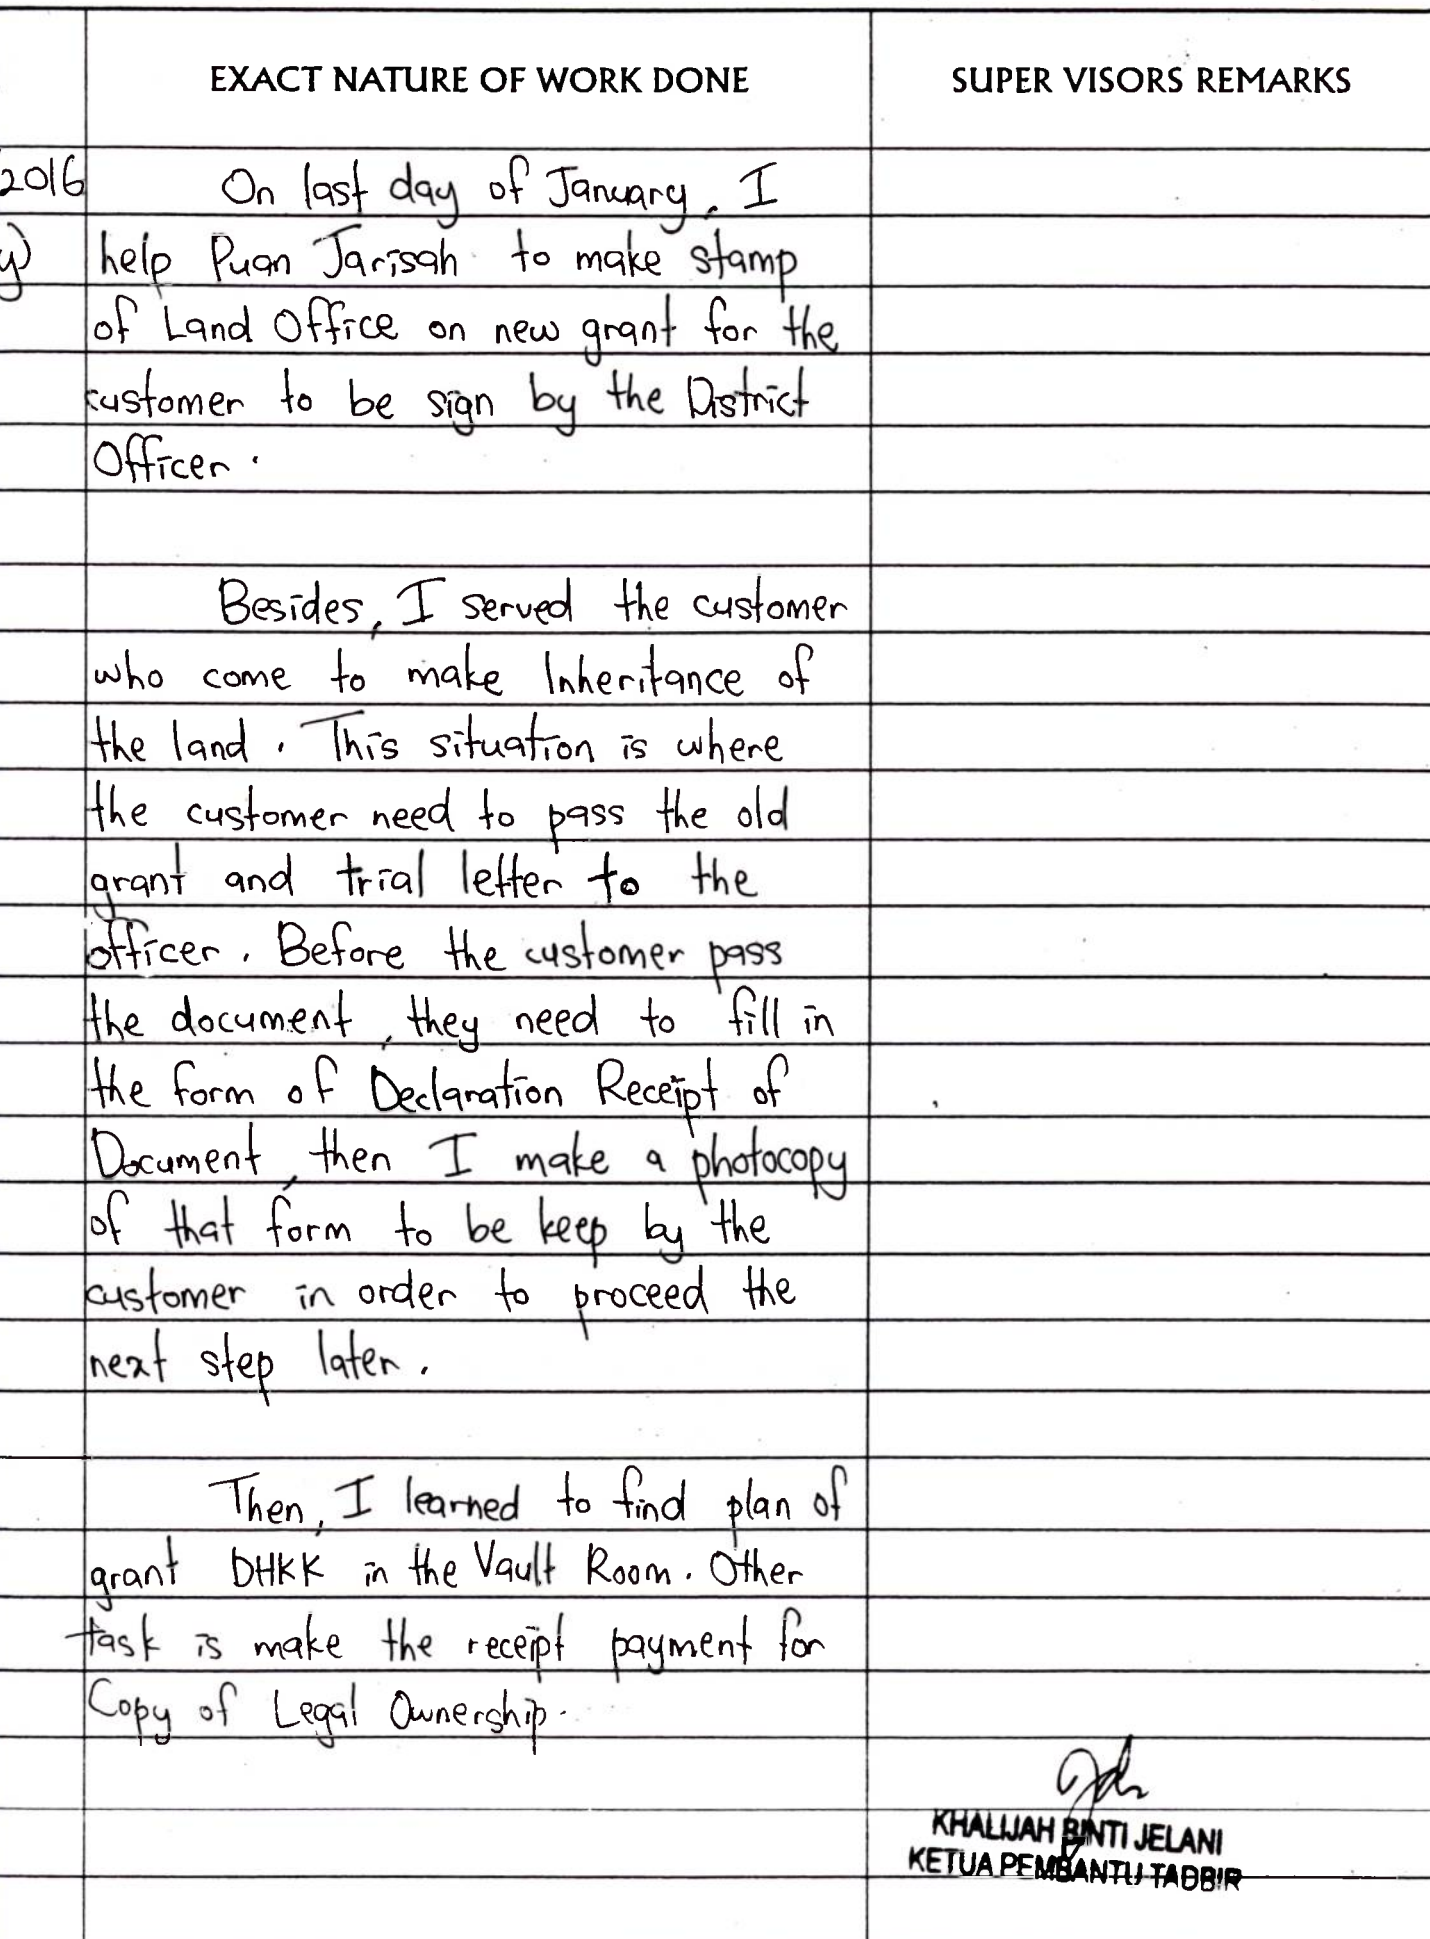 EXACT NATURE OF WORK DONE
SUPER VISORS REMARKS
2016
On last day of January, I
y)
help Puan Jarisah to make stamp
of Land Office on new grant for the
customer to be sign by the District
Officer.
Besides, I served the customer
who come to make Inheritance of
the land. This situation is where
the customer need to pass the old
grant and trial letter to the
officer. Before the customer pass
the document, they need to fill in
the form of Declaration Receipt of
Document, then I make a photocopy
of that form to be keep by the
customer in order to proceed the
next step later.
Then, I learned to find plan of
grant DHKK in the Vault Room. Other
task is make the receipt payment for
Copy of Legal Ownership.
KHALIJAH BINTI JELANI
KETUA PEMBANTU TADBIR